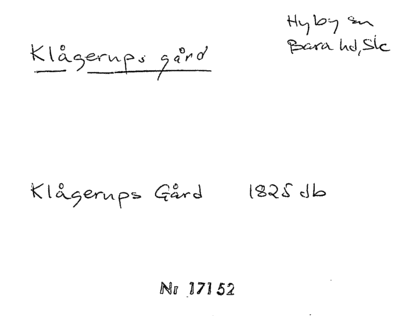 Hyby sn
Klågerups gård
Bara hd, Sk
Klågerups Gård 1825 db
Nr 17152